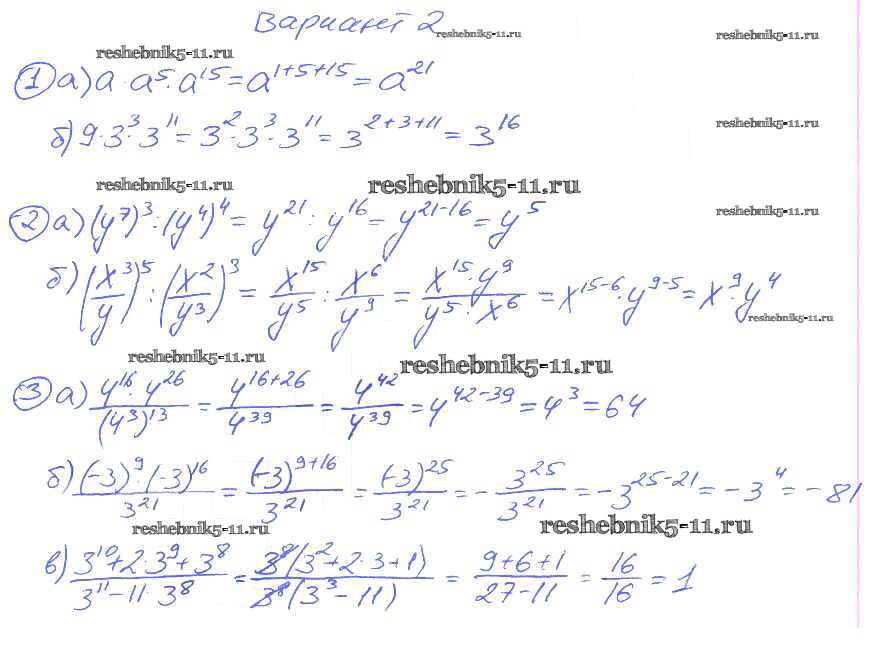 Вариант 2
reshebnik5-11.ru
reshebnik5-11.ru
reshebnik5-11.ru
① а) a · a⁵ · a¹⁵ = a¹⁺⁵⁺¹⁵ = a²¹
б) 9 · 3³ · 3¹¹ = 3² · 3³ · 3¹¹ = 3²⁺³⁺¹¹ = 3¹⁶
reshebnik5-11.ru
reshebnik5-11.ru
reshebnik5-11.ru
reshebnik5-11.ru
② а) (y⁷)³ : (y⁴)⁴ = y²¹ : y¹⁶ = y²¹⁻¹⁶ = y⁵
б) (x³/y)⁵ : (x²/y³)³ = x¹⁵/y⁵ : x⁶/y⁹ = x¹⁵·y⁹/y⁵·x⁶ = x¹⁵⁻⁶·y⁹⁻⁵ = x⁹·y⁴
reshebnik5-11.ru
reshebnik5-11.ru
reshebnik5-11.ru
③ а) 4¹⁶·4²⁶/(4³)¹³ = 4¹⁶⁺²⁶/4³⁹ = 4⁴²/4³⁹ = 4⁴²⁻³⁹ = 4³ = 64
б) (-3)⁹·(-3)¹⁶/3²¹ = (-3)⁹⁺¹⁶/3²¹ = (-3)²⁵/3²¹ = - 3²⁵/3²¹ = -3²⁵⁻²¹ = -3⁴ = -81
reshebnik5-11.ru
reshebnik5-11.ru
в) 3¹⁰+2·3⁹+3⁸/3¹¹-11·3⁸ = 3⁸(3²+2·3+1)/3⁸(3³-11) = 9+6+1/27-11 = 16/16 = 1